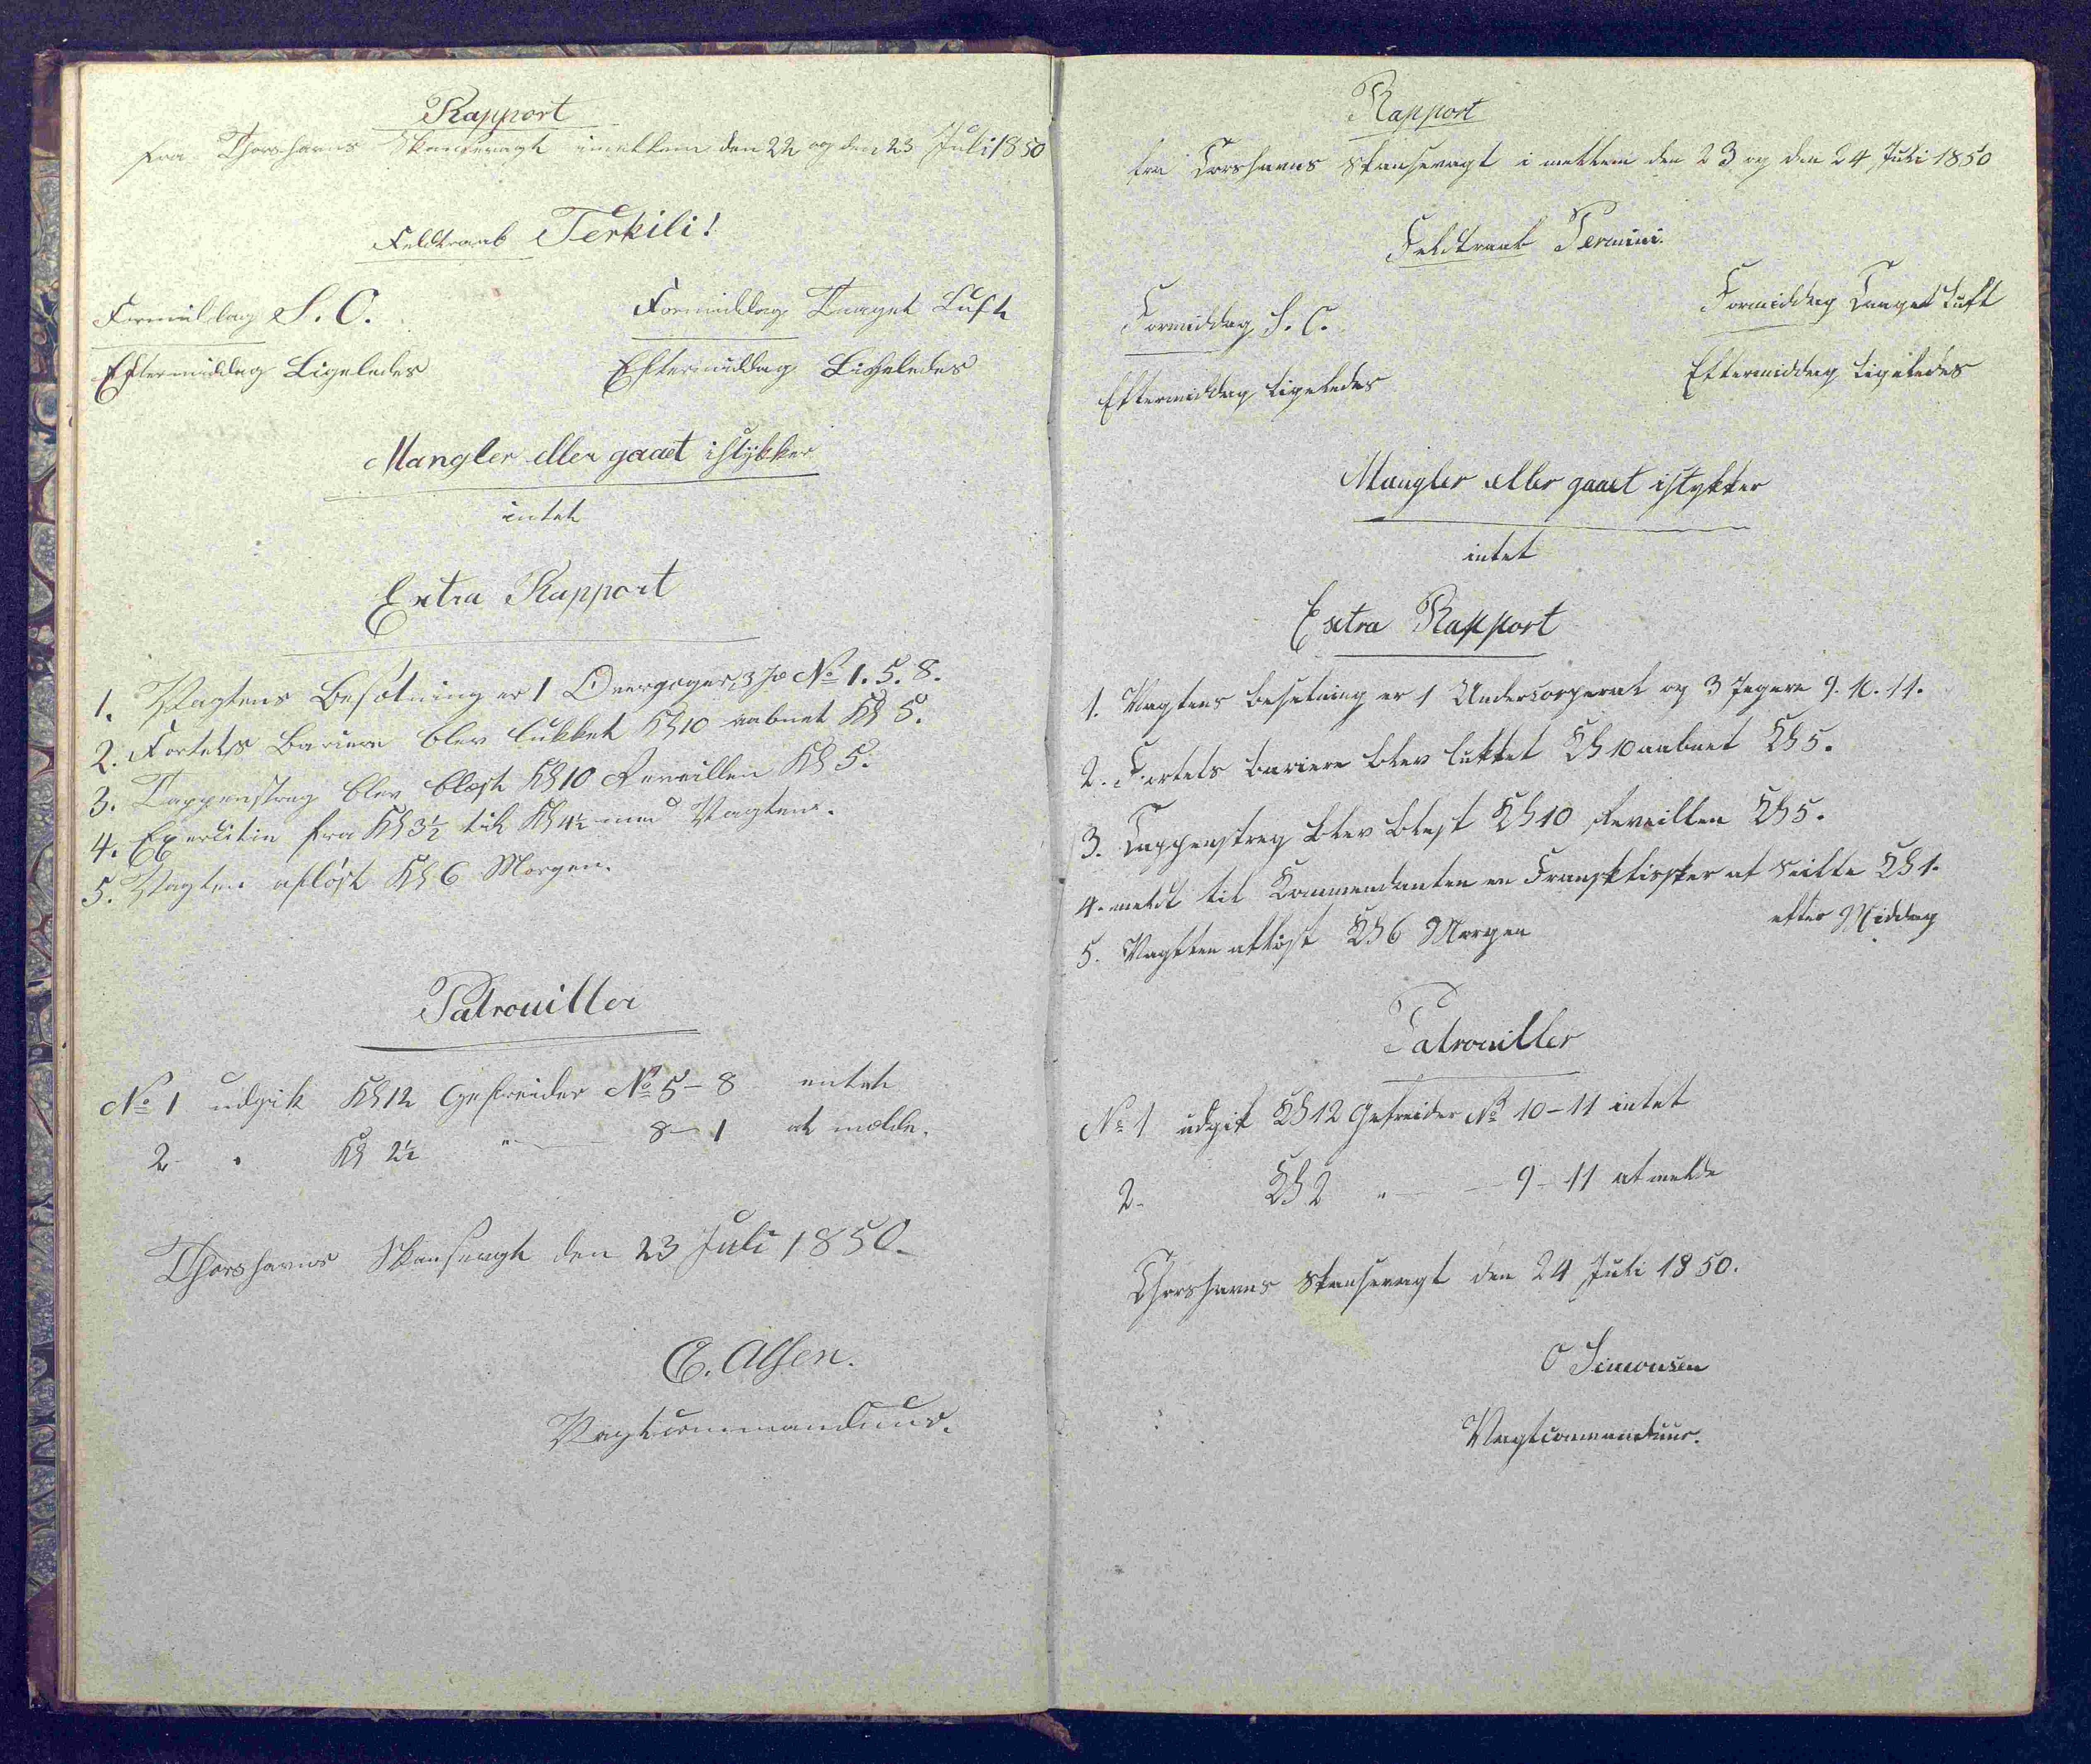 Rapport
fra Thorshavns Skansevagt imellem den 22 og den 23 Juli 1850
Feldtraab Terkili!
Formiddag S. O. Formiddag Taaget Luft
Eftermiddag Ligeledes Eftermiddag Ligeledes
Mangler eller gaaet istykker
intet
Extra Rapport
1. Vagtens Besætning er 1 Overjæger, 3 Jæ No 1. 5. 8.
2. Fortets Bariere blev lukket Kl 10 aabnet Kl 5.
3. Tappenstreg blev blæst Kl 10 Reveillen Kl 5.
4. Exersitie fra Kl 3½ til Kl 4½ med Vagten.
5. Vagten afløst Kl 6 Morgen.
Patrouiller
No 1 udgik Kl 12 Gefreider No 5 - 8 intet
2 " Kl 2½ " — 8 - 1 at melde.
Thorshavns Skansevagt den 23 Juli 1850.
Vagtcommandeur.
Rapport
fra Torshavns Skansevagt i mellem den 23 og den 24 Juli 1850
Feldtraab Permini.
Formiddag S. O. Formiddag Taaget Luft
Eftermiddag Ligeledes Eftermiddag Ligeledes
Mangler eller gaaet istykker
intet
Extra Rapport
1. Vagtens besetning er 1 Undercorperal og 3 Jegere 9. 10. 11.
2. Fortets bariere blev lukket Kl 10 aabnet Kl 5.
3. Tappenstreg blev blest Kl 10 Reveillen Kl 5.
4. meldt til Kommendanten en Fransk fissker at seille Kl 1.
efter Middag
5. Vagtten afløst Kl 6 Morgen
Patrouiller
No 1 udgik Kl 12 Gefreider No 10 - 11 intet
2 - Kl 2 " — 9 - 11 at melde
Thorshavns Skansevagt den 24 Juli 1850.
O Simonsen
Vagtcommandeur.